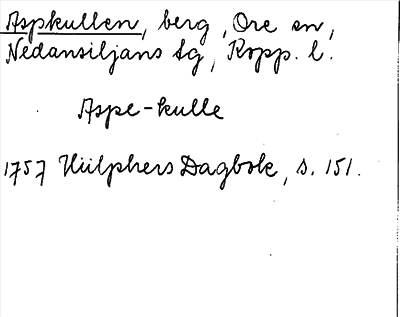 Aspkullen, berg, Ore sn,
Nedansiljans tg, Kopp. l.
Aspe-kulle
1757 Hülphers Dagbok, s. 151.